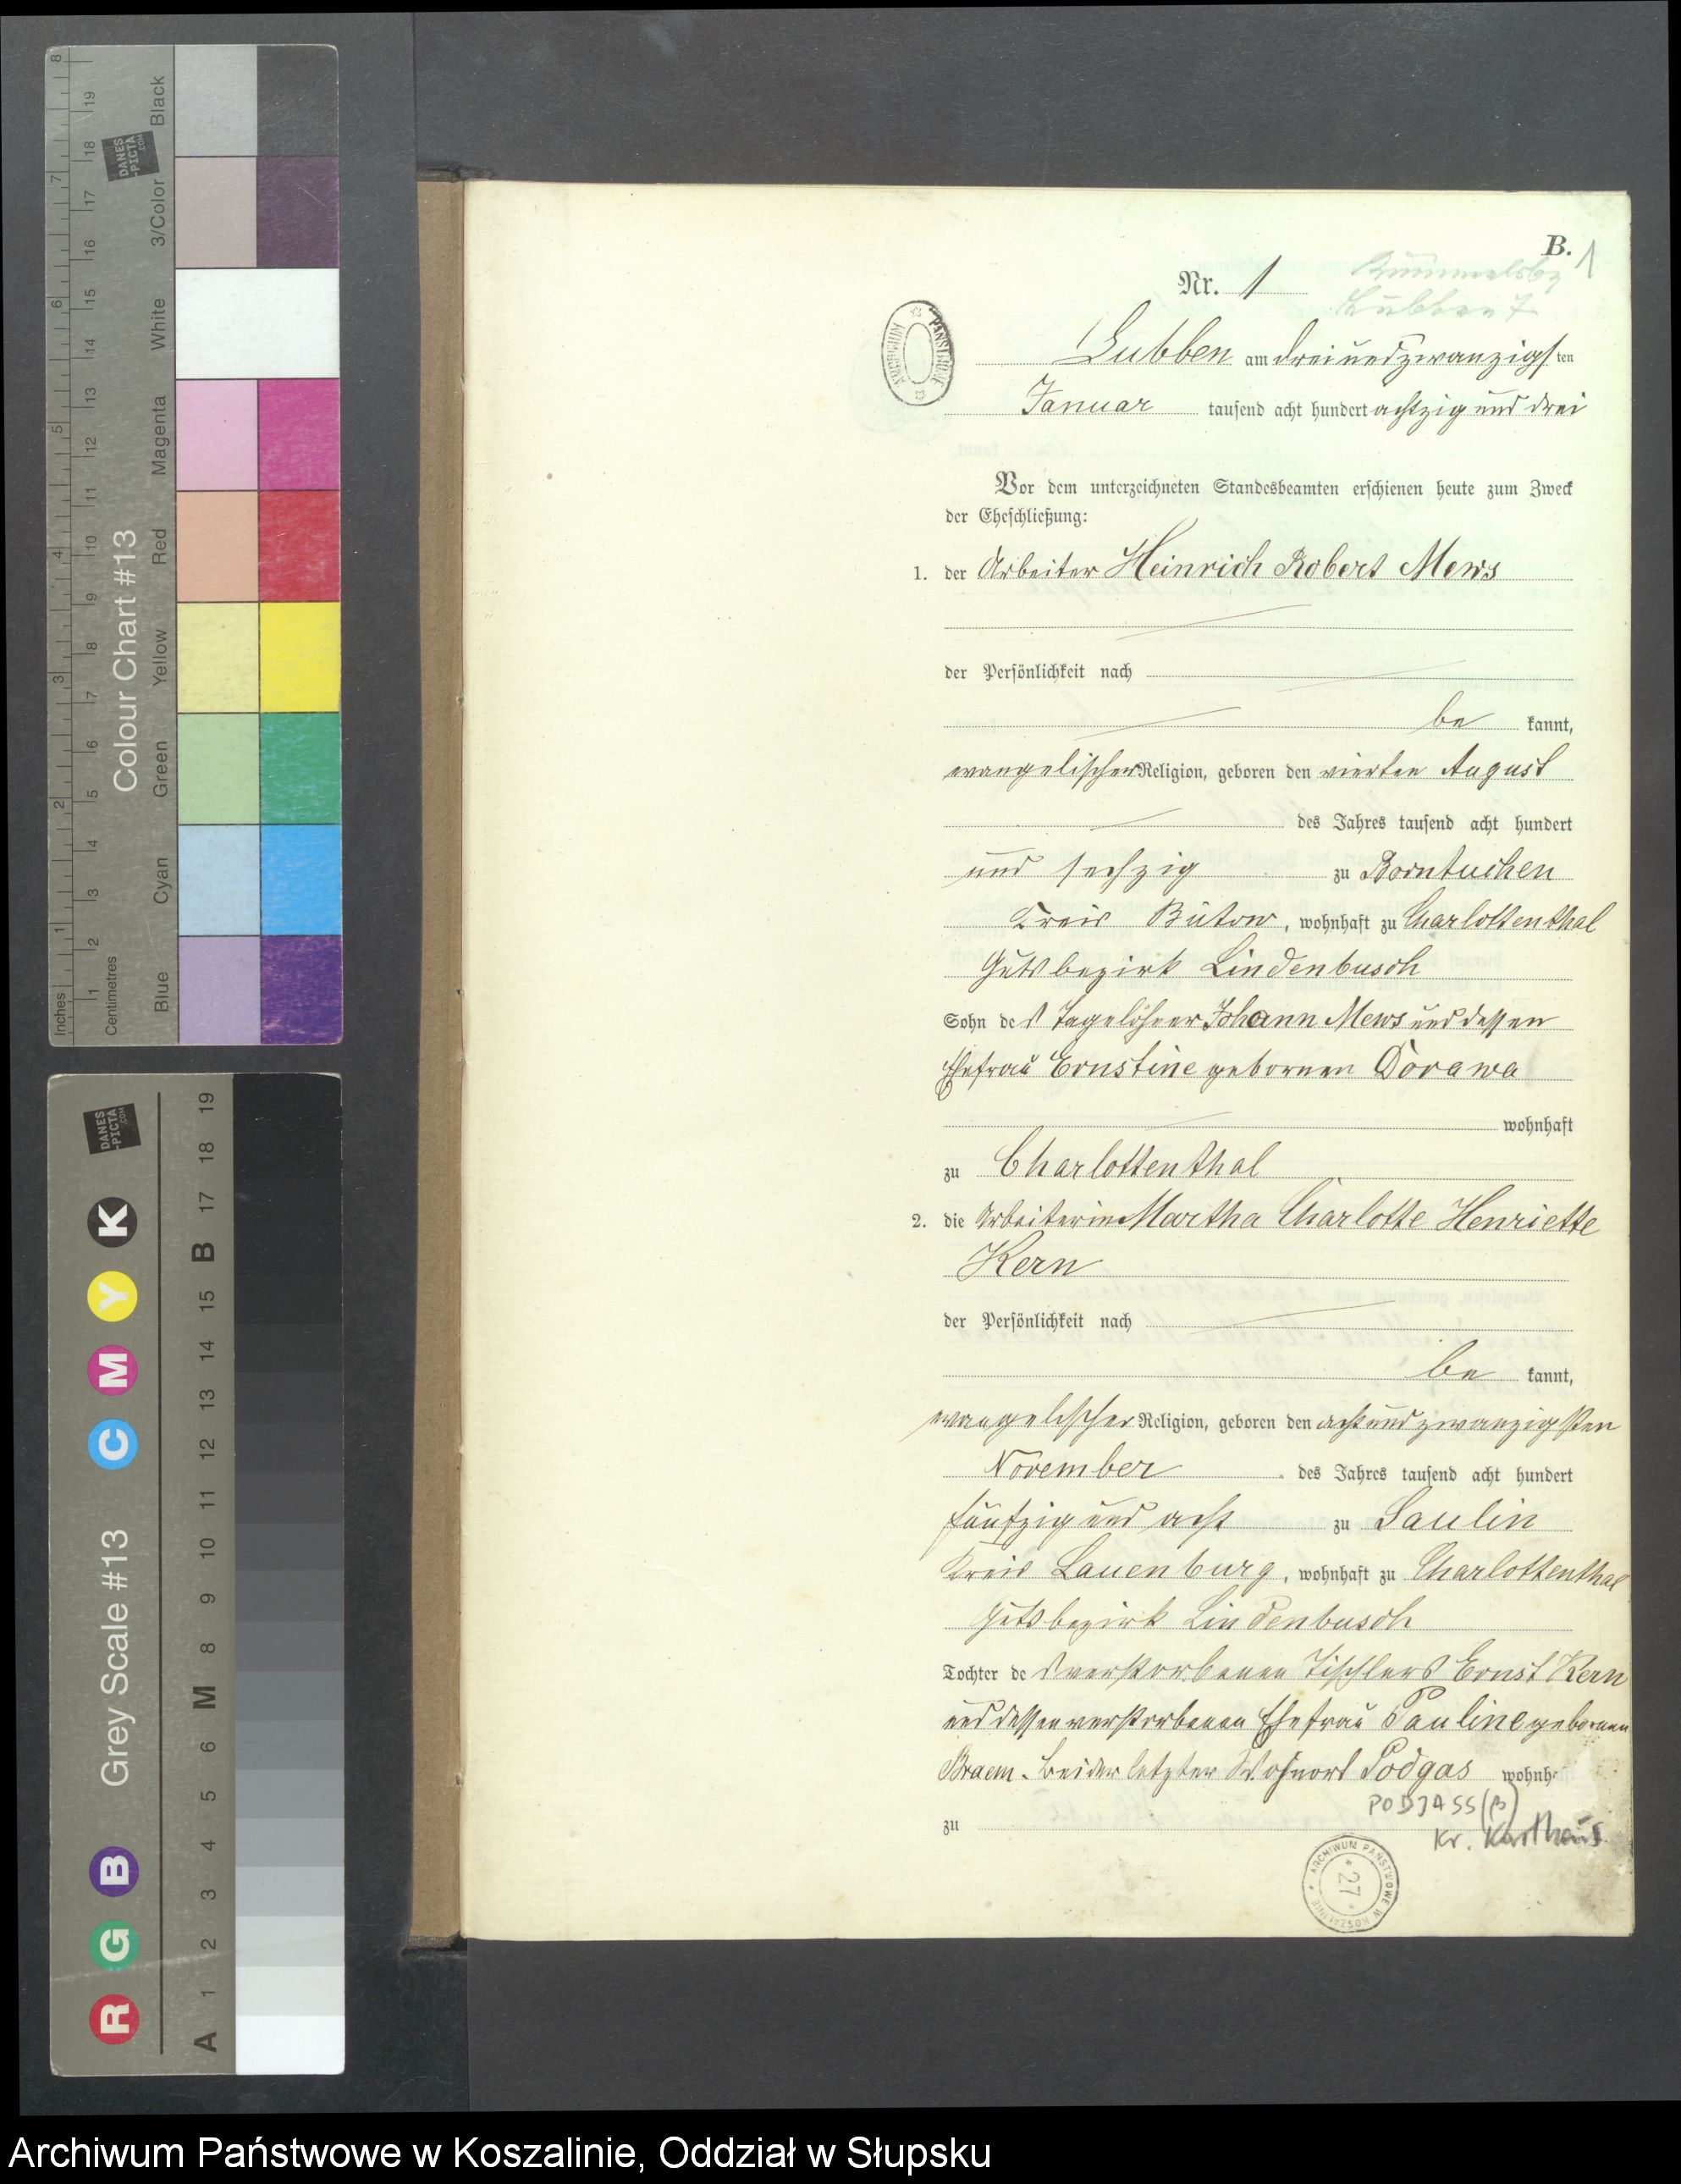 B.
1
Nr. 1
Lubben am dreiundzwanzigsten
Januar tausend acht hundert achtzig und drei
Vor dem unterzeichneten Standesbeamten erschienen heute zum Zweck
der Eheschließung:
1. der Arbeiter Heinrich Robert Mews
der Persönlichkeit nach
be kannt,
evangelischer Religion, geboren den vierten August
des Jahres tausend acht hundert
und sechzig zu Borntuchen
Kreis Bütow, wohnhaft zu Charlottenthal
Gutsbezirk Lindenbusch
Sohn des Tagelöhner Johann Mews und dessen
Ehefrau Ernstine gebornen Dorawa
wohnhaft
zu Charlottenthal
2. die Arbeiterin Martha Charlotte Henriette
Kern
der Persönlichkeit nach
be kannt,
evangelischer Religion, geboren den achtundzwanzigsten
November des Jahres tausend acht hundert
fünfzig und acht zu Saulin
Kreis Lauenburg, wohnhaft zu Charlottenthal
Gutsbezirk Lindenbusch
Tochter des verstorbenen Tischlers Ernst Kern
und dessen verstorbenen Ehefrau Pauline gebornen
Braem. beider letzter Wohnort Podgas wohnh
PODJASS (β)
zu
Kr. Karthaus
ARCHIWUM PAŃSTWOWE
ARCHIWUM PAŃSTWOWE W KOSZALINIE
27
Inches
Centimetres
Colour Chart #13
Blue
Cyan
Green
Yellow
Red
Magenta
White
3/Color
Black
DANES
-PICTA
.COM
1 2 3 4 5 6 7 8
1 2 3 4 5 6 7 8 9 10 11 12 13 14 15 16 17 18 19
Grey Scale #13
R G B C M Y K
DANES
-PICTA
.COM
A 1 2 3 4 5 6 M 8 9 10 11 12 13 14 15 B 17 18 19
Archiwum Państwowe w Koszalinie, Oddział w Słupsku